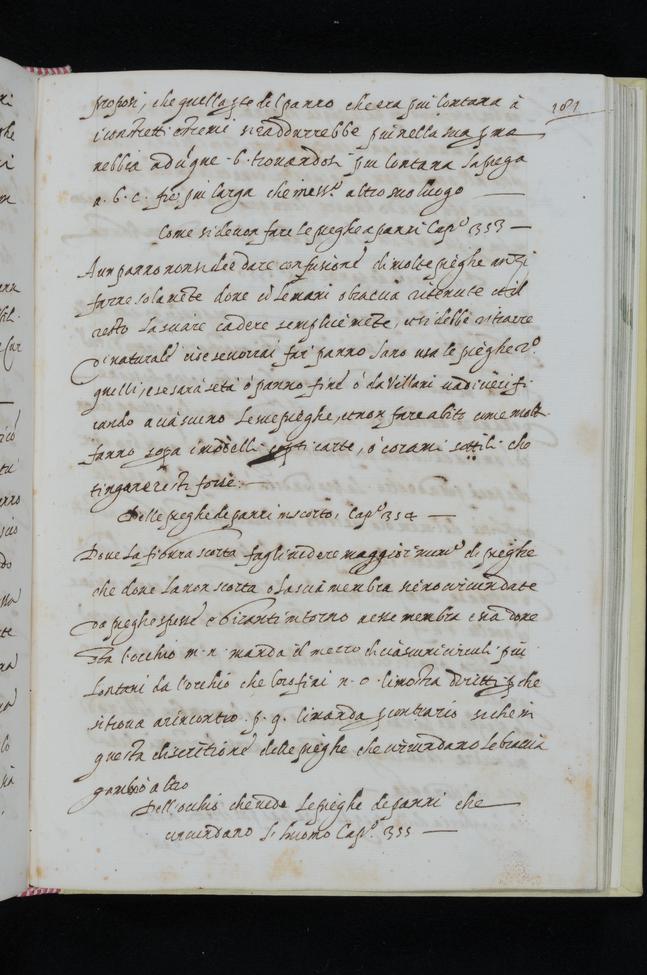 181
proposi, che quella pte del panno che era piu lontana à
i contretti estremi si ridurrebbe piu nella sua pma
a. b. c. fie piu larga che in ness.º altro suo luogo
Come si devon fare le pieghe a panni Cap.º 353
A un panno non si dee dare confusione di molte pieghe anzi
farne solamẽte dove cõ le mani o braccia ritenute et il
resto lasciare cadere semplicemẽte, et si debbe ritrarre
di naturale cioè se vorrai far panno lano usa le pieghe 2º
quelli, e se sarà seta ò panno fine ò da Villani va diversifi
cando a ciascuno le sue pieghe, et non fare abito come molti
fanno sopa i modelli carte, ò corami sottili che
tinganeresti forse.
Delle pieghe de panni in scorto, Cap.º 354
Dove la figura scorta fagli vedere maggior num.º di pieghe
che dove la non scorta o la sua membra sieno circundate
da pieghe spesse e giranti intorno a esse membra e sia dove
sta l'occhio m. n. manda il mezzo di ciascuni circuli piu
lontani da l'occhio che loro fini n. o. li mostra diritti p che
si trova a rincontro. p. q. li manda p contrario si che in
questa discrẽtione delle pieghe che circundano le braccia
gambe ò altro
Dell'occhio che vede le pieghe de panni che
circundano l'huomo Cap.º 355